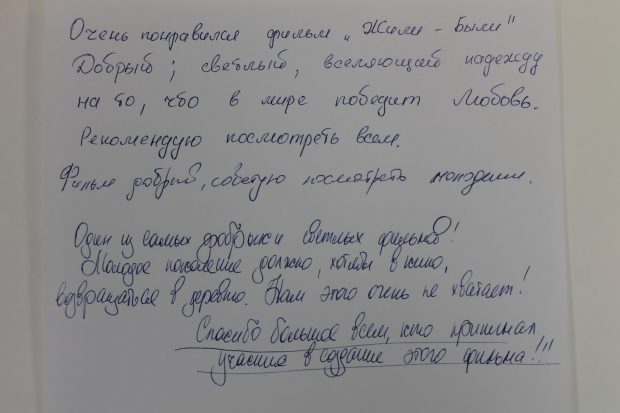 Очень понравился фильм „Жили-Были"
Добрый, светлый, вселяющий надежду
на то, что в мире победит Любовь.
Рекомендую посмотреть всем.
Фильм добрый, советую посмотреть молодёжи.
Один из самых добрых и светлых фильмов!
Молодое поколение должно, хотя бы в кино,
возвращаться в деревню. Нам этого очень не хватает!
Спасибо большое всем, кто принимал
участие в создание этого фильма!!!